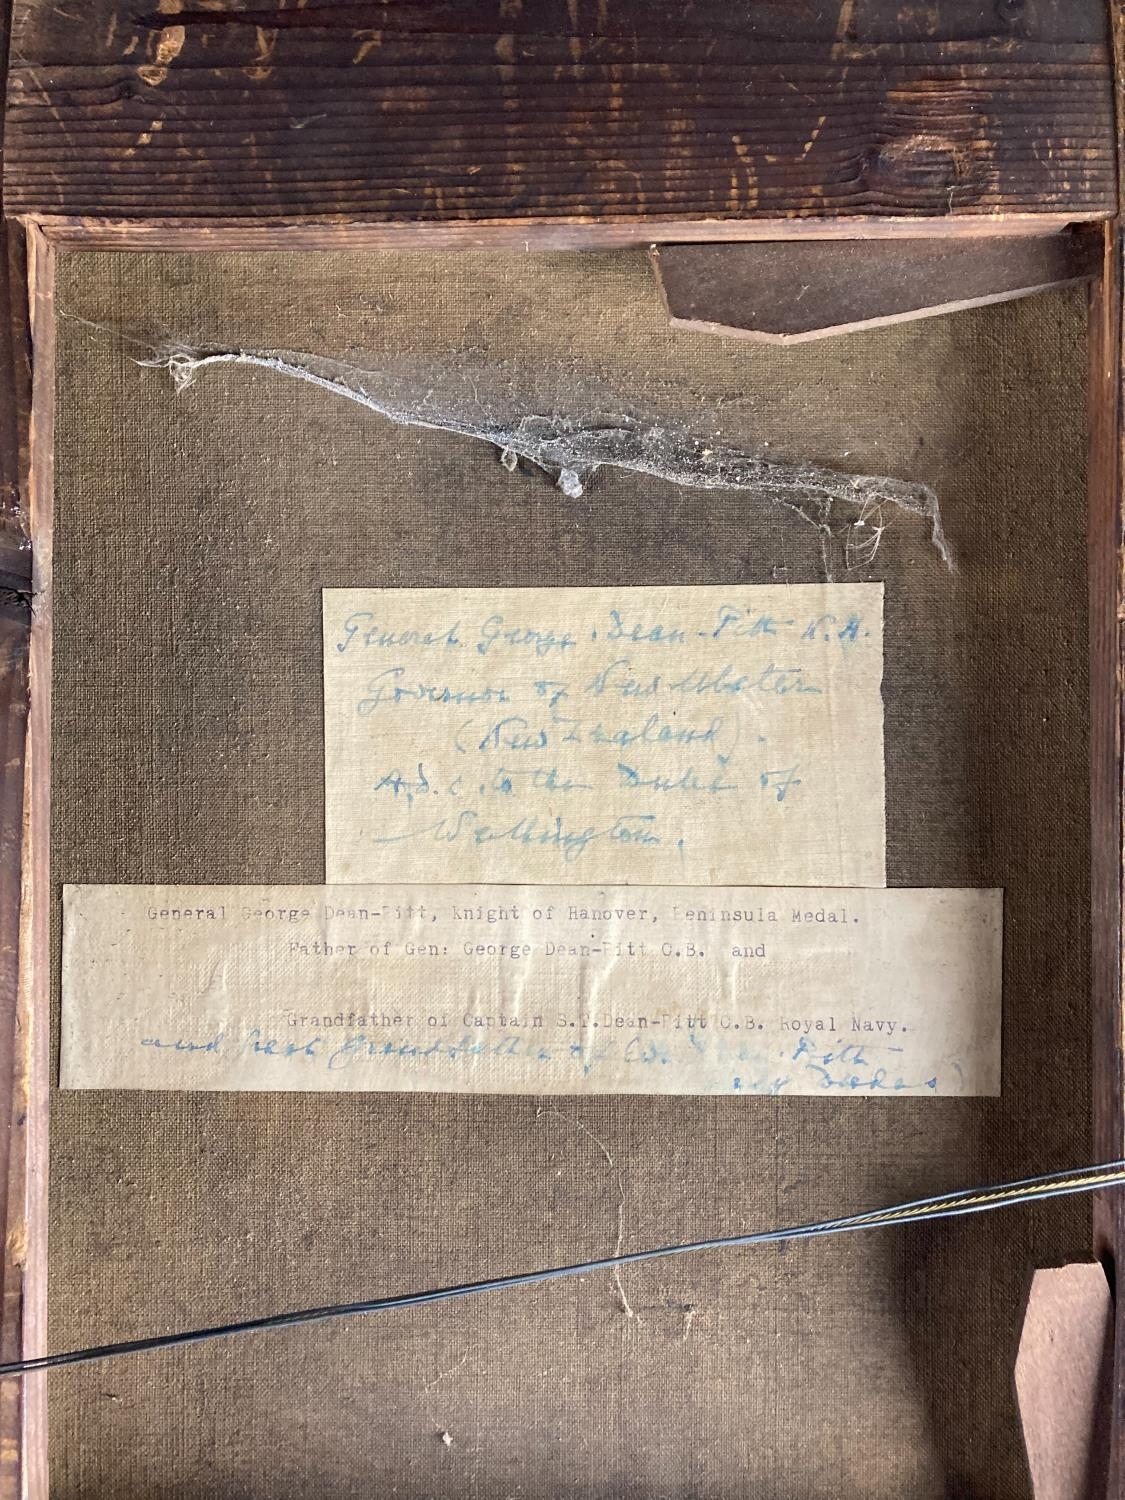 General George Dean-Pitt K.H.
Governor of New Ulster
(New Zealand).
A.D.C. to the Duke of
Wellington.
General George Dean-Pitt, Knight of Hanover, Peninsula Medal.
Father of Gen: George Dean-Pitt C.B. and
Grandfather of Captain S.T.Dean-Pitt C.B. Royal Navy.
and great Grandfather of Pitt